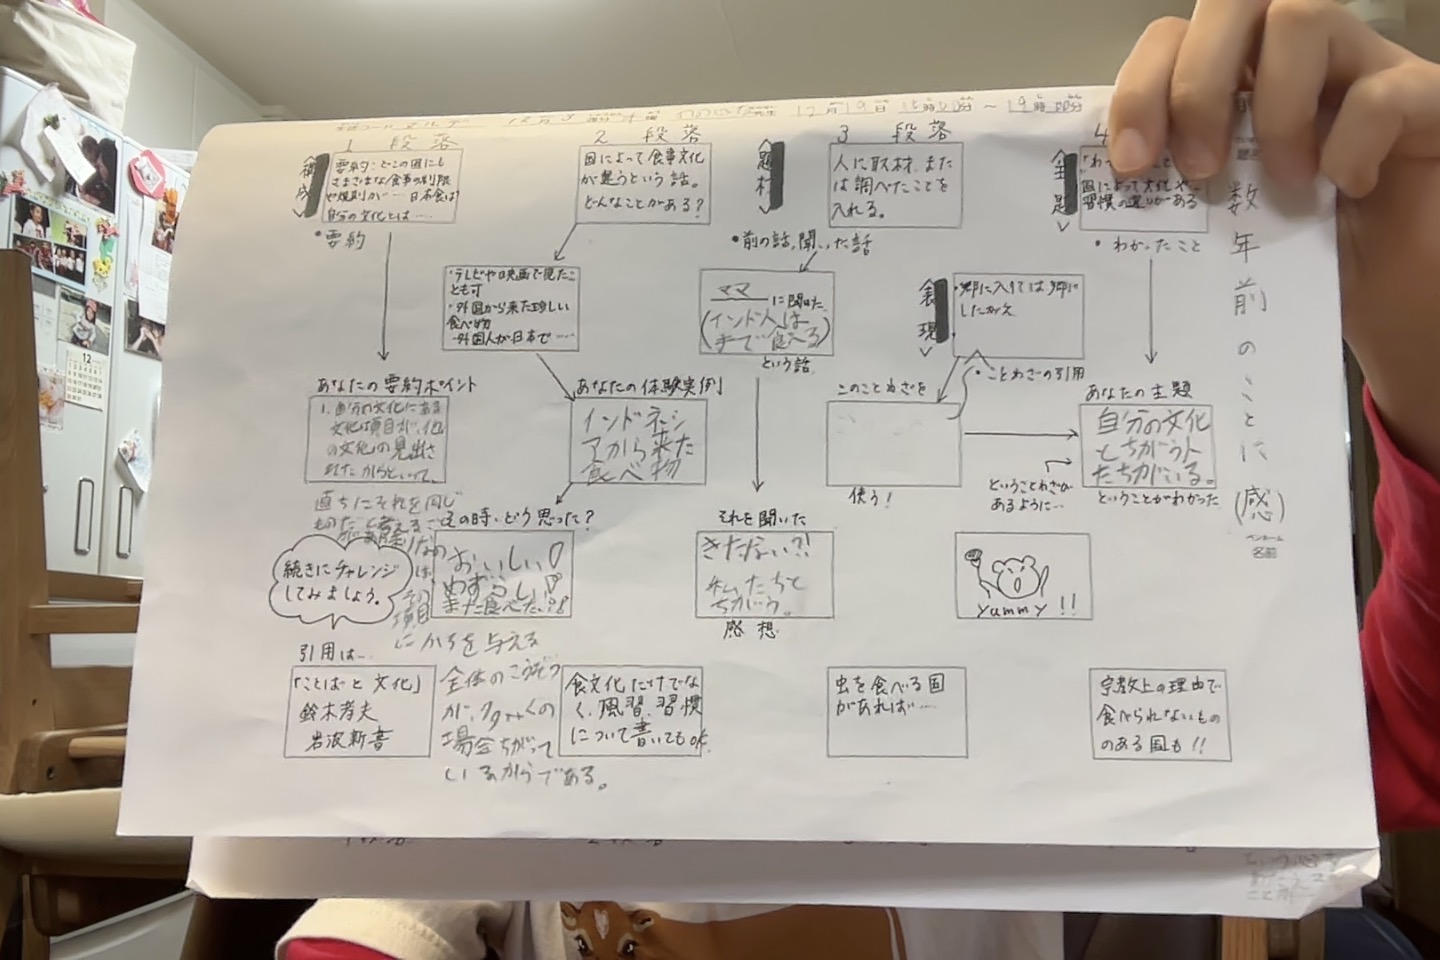 12月19日
1 段落
2 段落
3 段落
4
数年前のことに(感)
ペンネーム
名前
構成
要約:どこの国にも
さまざまな食事の制限
や規則が…日本食は?
自分の文化とは……
・要約
国によって食事文化
が違うという話。
どんなことがある?
題材
人に取材、また
は調べたことを
入れる。
・前の話、聞いた話
主題
国によって文化や、
習慣の違いがある
・わかったこと
・テレビや映画で見たこ
とも可
・外国から来た珍しい
食べ物
・外国人が日本で……
ママ に聞いた
(インド人は
手で食べる)
という話
表現
・郷に入りては郷に
したがえ
・ことわざの引用
あなたの要約ポイント
1. 自分の文化にある
文化は項目が、他
の文化の見出さ
れたからといって、
直ちにそれを同じ
ものだと考える
は、その
項目
にかちを与える
全体のこうぞう
が、タタャくの
場合ちがって
いるからである。
あなたの体験実例
インドネシ
アから来た
食べ物
このことわざを
使う!
ということわざが
あるように…
あなたの主題
自分の文化
とちがう人
たちがいる。
ということがわかった
その時、どう思った?
おいしい!
めずらしい!
また食べたい?!
それを聞いた
きたない?!
私たちと
ちがう。
感想
yummy!!
続きにチャレンジ
してみましょう。
引用は…
「ことばと文化」
鈴木孝夫
岩波新書
食文化だけでな
く、風習、習慣
について書いてもok.
虫を食べる国
があれば……
宗教上の理由で
食べられないもの
のある国も!!